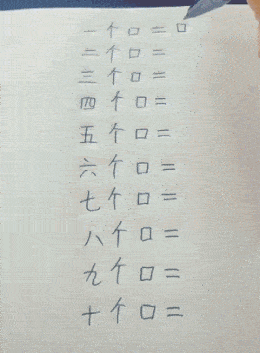 一个口=口
二个口=
三个口=
四个口=
五个口=
六个口=
七个口=
八个口=
九个口=
十个口=